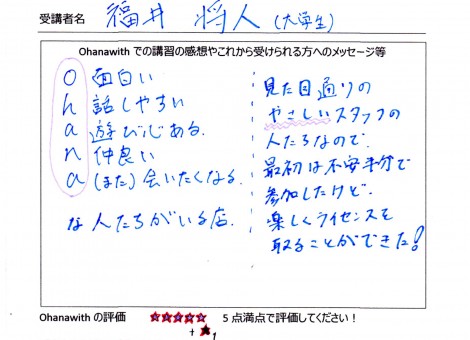 受講者名 福井 将人 (大学生)
Ohanawith での講習の感想やこれから受けられる方へのメッセージ等
O 面白い
h 話しやすい
a 遊び心ある.
n 仲良い
a (また) 会いたくなる.
な人たちがいる店.
見た目通りの
やさしいスタッフの
人たちなので.
最初は不安半分で
参加したけど.
楽しくライセンスを
取ることができた!
Ohanawith の評価 ★★★★★ 5 点満点で評価してください!
+ ★1